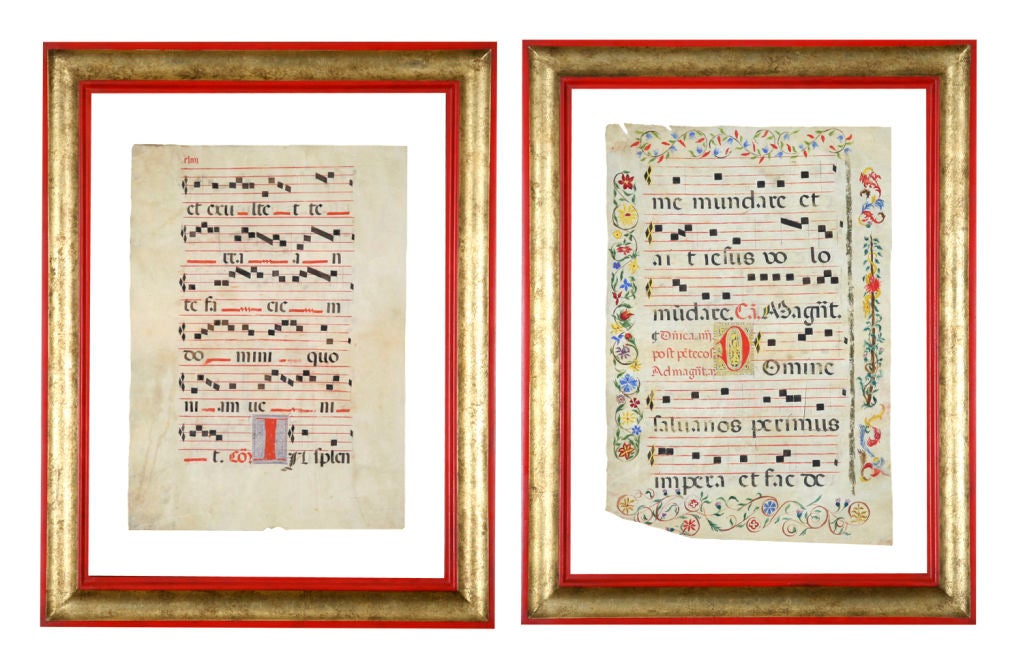 et exu lte t te
rra an
te fa cie m
do mini quo
ni am ue ni
t. Cõ IN splen
me mundare et
ai t iesus vo lo
mũdare. Cã. Magñt.
Dñica. iiij
post pẽtecos
Ad magñt. a.
DOmine
saluanos perimus
impera et fac de